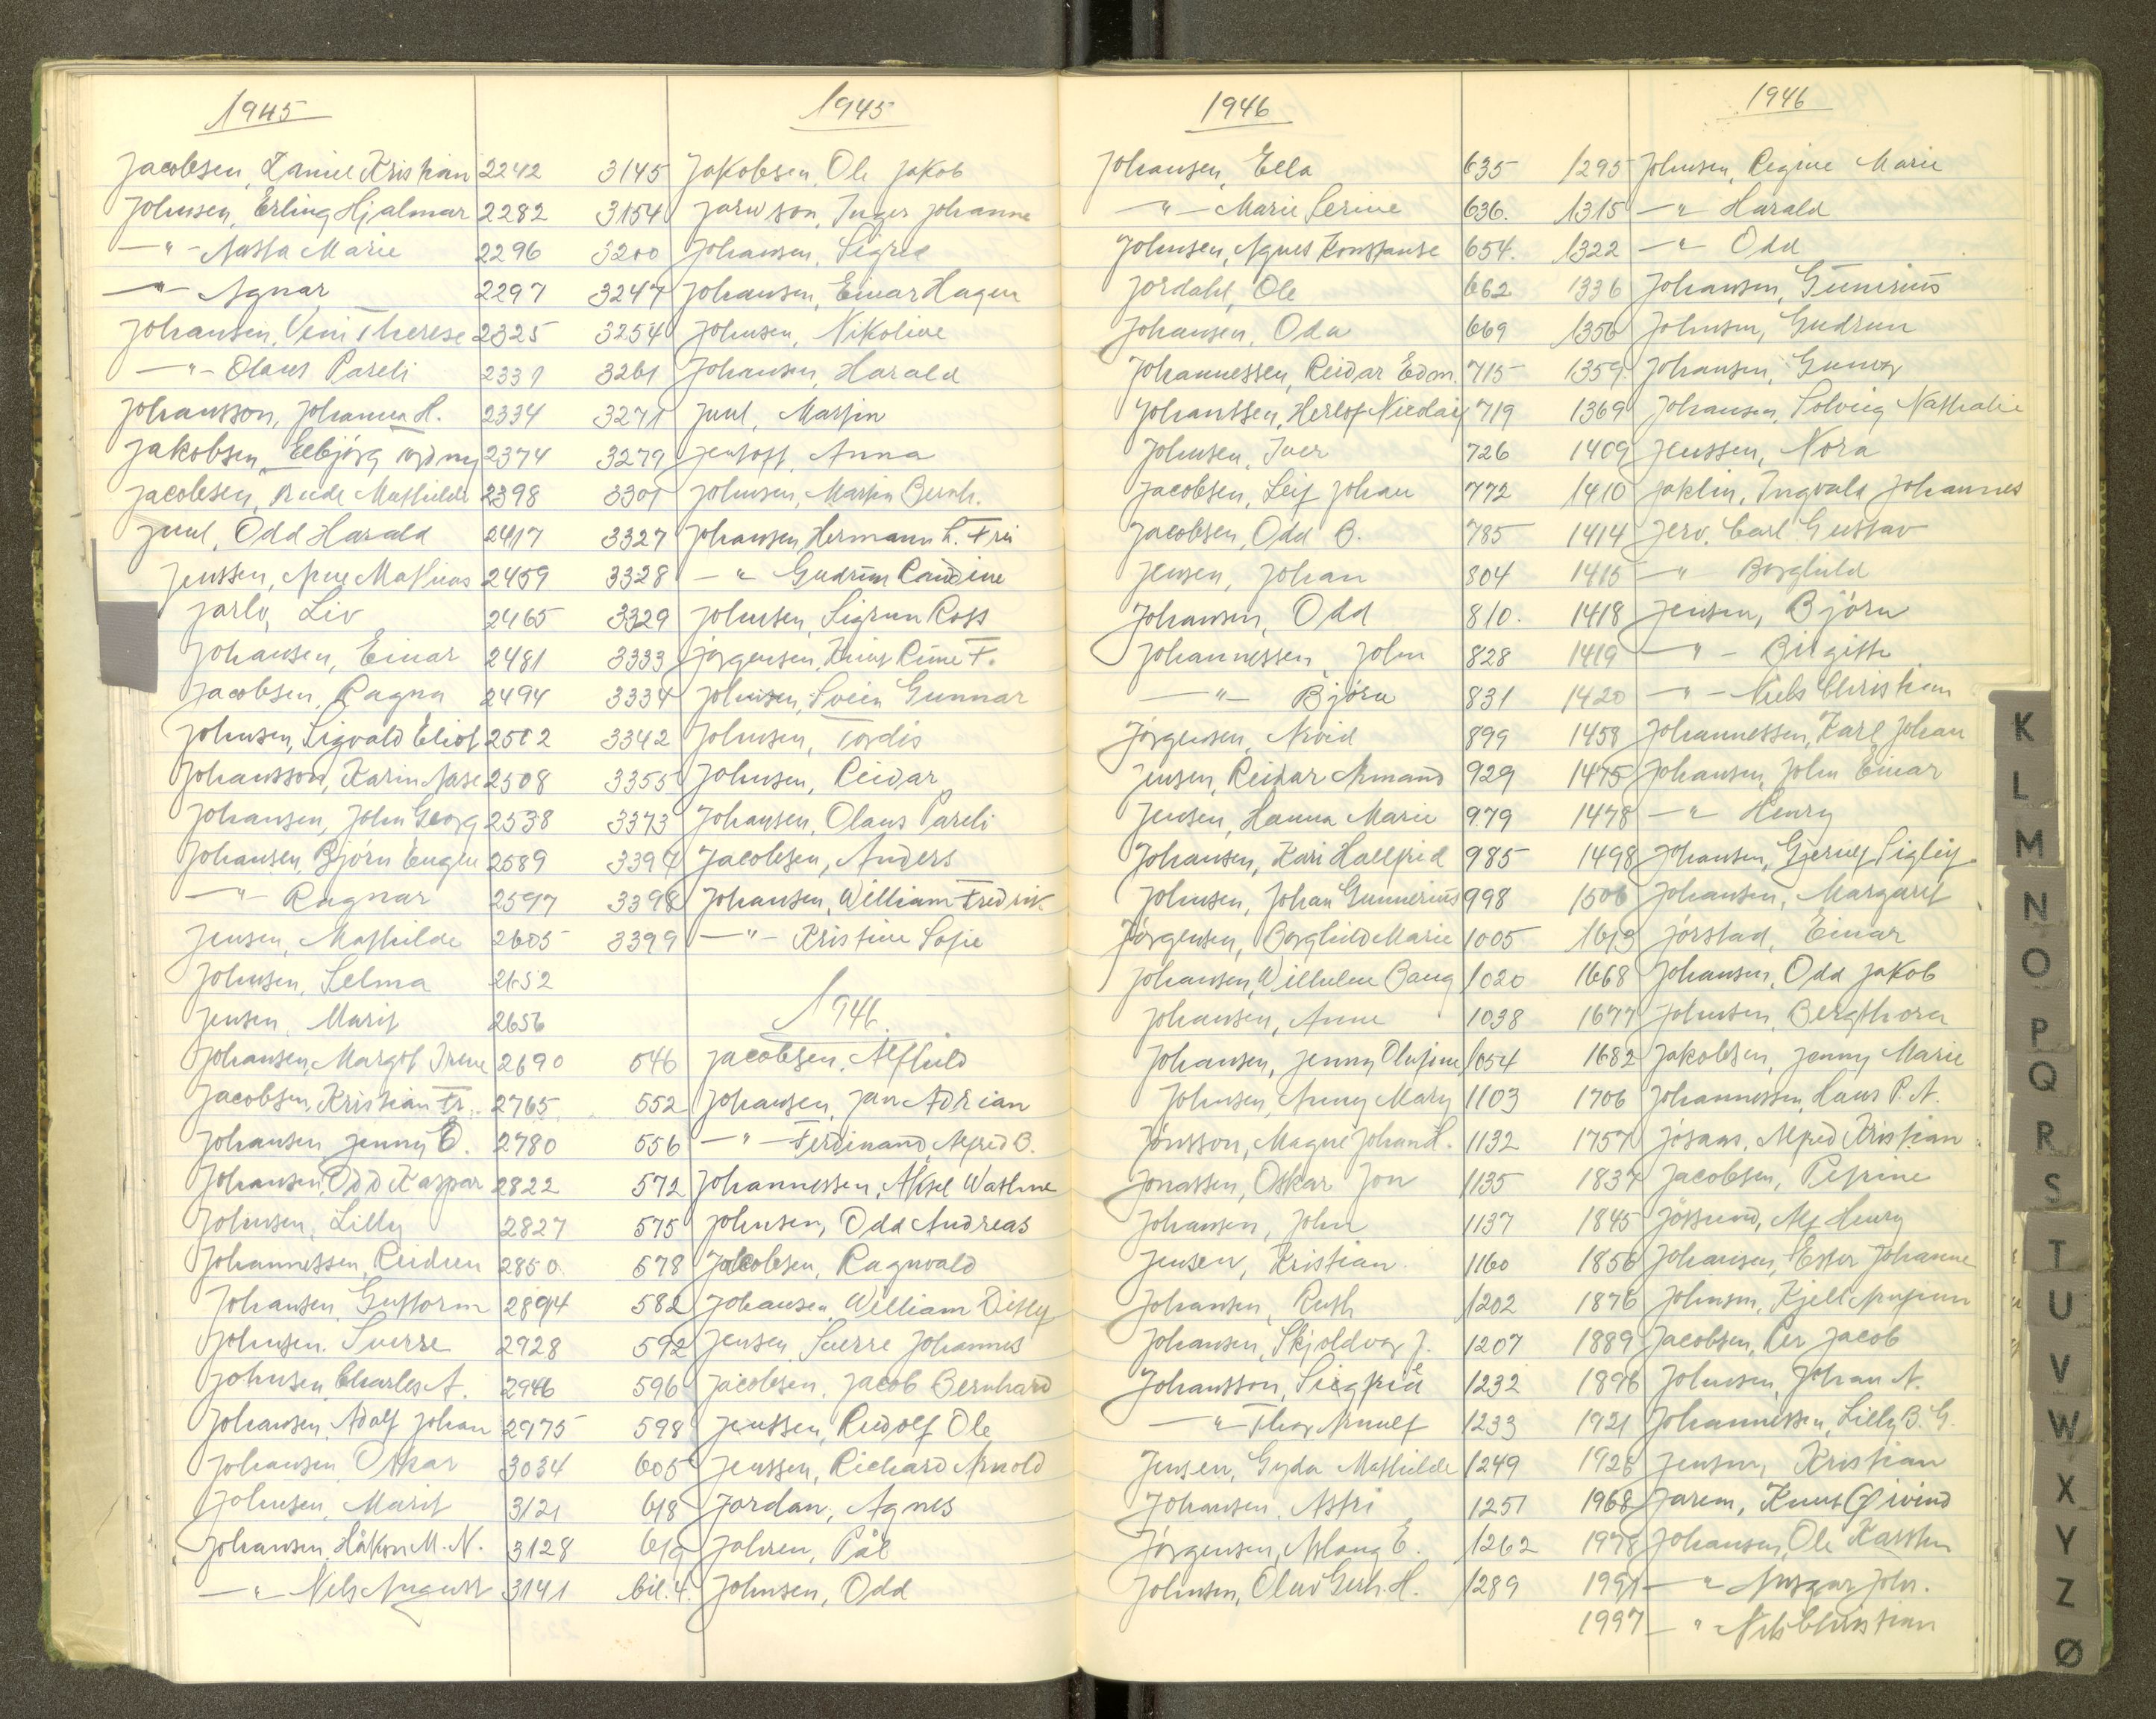 1945
Jacobsen, Daniel Kristian 2242
Johnsen, Erling Hjalmar 2282
—"— Aasta Marie 2296
—"— Agnar 2297
Johansen, Veni Therese 2325
—"— Olaus Pareli 2331
Johansson, Johanna H. 2334
Jakobsen, Eebjörg Tordny 2374
Jacobsen, Mathilde 2398
Juul, Odd Harald 2417
Jenssen, Arne Mathias 2459
Jarlo, Liv 2465
Johansen, Einar 2481
Jacobsen, Ragna 2494
Johnsen, Sigvald Eliot 2502
Johansson, Karin Aase 2508
Johansen, John Georg 2538
Johansen, Bjørn Eugen 2589
—"— Ragnar 2597
Jensen, Mathilde 2605
Johnsen, Selma 2652
Jensen, Marit 2656
Johansen, Margot Irene 2690
Jacobsen, Kristian Fr. 2765
Johansen, Jenny O. 2780
Johansen, Odd Kaspar 2822
Johnsen, Lilly 2827
Johannessen, Reidun 2850
Johansen, Guttorm 2894
Johnsen, Sverre 2928
Johnsen, Charles A. 2946
Johansen, Adolf Johan 2975
Johansen, Oskar 3034
Johnsen, Marit 3121
Johansen, Håkon M. N. 3128
—"— Nils August 3141
1945
3145 Jakobsen, Ole Jakob
3154 Jarwson, Inger Johanne
3200 Johansen, Sigrid
3247 Johansen, Einar Hagen
3254 Johnsen, Nikoline
3261 Johansen, Harald
3271 Juul, Martin
3279 Jentoft, Anna
3301 Johnsen, Martin Bernh.
3327 Johansen, Hermann L. Fri
3328 —"— Gudrun Randine
3329 Johnsen, Sigrun Ross
3333 Jörgensen, Knut Rune F.
3334 Johnsen, Svein Gunnar
3342 Johnsen, Tordis
3355 Johnsen, Reidar
3373 Johansen, Olaus Pareli
3394 Jacobsen, Anders
3398 Johansen, William Fredrik
3399 —"— Kristine Sofie
1946.
546 Jacobsen, Alfhild
552 Johansen, Jan Adrian
556 —"— Ferdinand Alfred B.
572 Johannessen, Aksel Wathne
575 Johnsen, Odd Andreas
578 Jacobsen, Ragnvald
582 Johansen, William Ditlef
592 Jensen, Sverre Johannes
596 Jacobsen, Jacob Bernhard
598 Jenssen, Rudolf Ole
605 Jenssen, Richard Arnold
618 Jordan, Agnes
619 Jahren, Pål
bil. 4. Johnsen, Odd
1946
Johansen, Ella 635
—"— Marie Serine 636.
Johnsen, Agnes Konstanse 654.
Jordahl, Ole 662
Johansen, Oda 669
Johannessen, Reidar Edm. 715
Johanssen, Herlof Nicolay 719
Johnsen, Iver 726
Jacobsen, Leif Johan 772
Jacobsen, Odd B. 785
Jensen, Johan 804
Johansen, Odd 810.
Johannessen, John 828
—"— Bjørn 831
Jörgensen, Arvid 899
Jensen, Reidar Armand 929
Jensen, Hanna Marie 979
Johansen, Kari Hallfrid 985
Johnsen, Johan Gunnerius 998
Jörgensen, Borghild Marie 1005
Johansen, Wilhelm Bang 1020
Johansen, Anne 1038
Johansen, Jenny Olufine 1054
Johnsen, Anny Mary 1103
Jönsson, Magne Johan H. 1132
Jonassen, Oskar Jon 1135
Johansen, John 1137
Jensen, Kristian 1160
Johansen, Ruth 1202
Johansen, Skjoldvor J. 1207
Johansson, Siegfried 1232
—"— Thor Arnulf 1233
Jensen, Gyda Mathilde 1249
Johansen, Astri 1251
Jörgensen, Aslaug E. 1262
Johnsen, Oluv Gerh. H. 1289
1946
1295 Johnsen, Regine Marie
1315 —"— Harald
1322 —"— Odd
1336 Johansen, Gunerius
1350 Johnsen, Gudrun
1359 Johansen, Gunvor
1369 Johansen, Solveig Nathalie
1409 Jenssen, Nora
1410 Jaklin, Ingvald Johannes
1414 Jerv, Carl Gustav
1415 —"— Borghild
1418 Jensen, Bjørn
1419 —"— Birgitte
1420 —"— Niels Christian
1459 Johannessen, Karl Johan
1475 Johansen, John Einar
1478 —"— Henry
1498 Johansen, Gjerulf Sigleif
1506 Johansen, Margarit
1613 Jörstad, Einar
1668 Johansen, Odd Jakob
1677 Johnsen, Bergthora
1682 Jakobsen, Jenny Marie
1706 Johannessen, Hans P. A.
1757 Jösaas, Alfred Kristian
1837 Jacobsen, Petrine
1845 Jössund, Alf Henry
1856 Johansen, Ester Johanne
1876 Johnsen, Kjell
1889 Jacobsen, Per Jacob
1896 Johnsen, Johan A.
1921 Johannessen, Lilly B. G.
1926 Jensen, Kristian
1968 Jarem, Knut Øivind
1978 Johansen, Ole Karsten
1991 —"— Ansgar Joh.
1997 —"— Nils Christian
K
L
M
N
O
P
Q
R
S
T
U
V
W
X
Y
Z
Ø